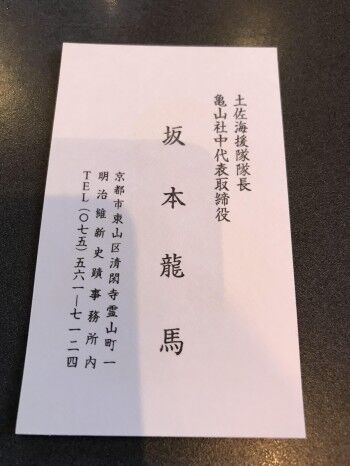 土佐海援隊隊長
亀山社中代表取締役
坂本龍馬
京都市東山区清閑寺霊山町一
明治維新史蹟事務所内
TEL(〇七五)五六一ー七一二四